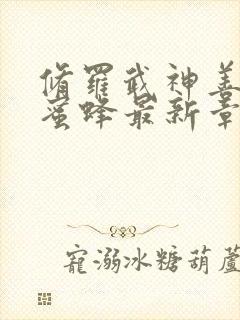 脩羅武神善
蜜蜂最新章
寵溺冰糖葫蘆